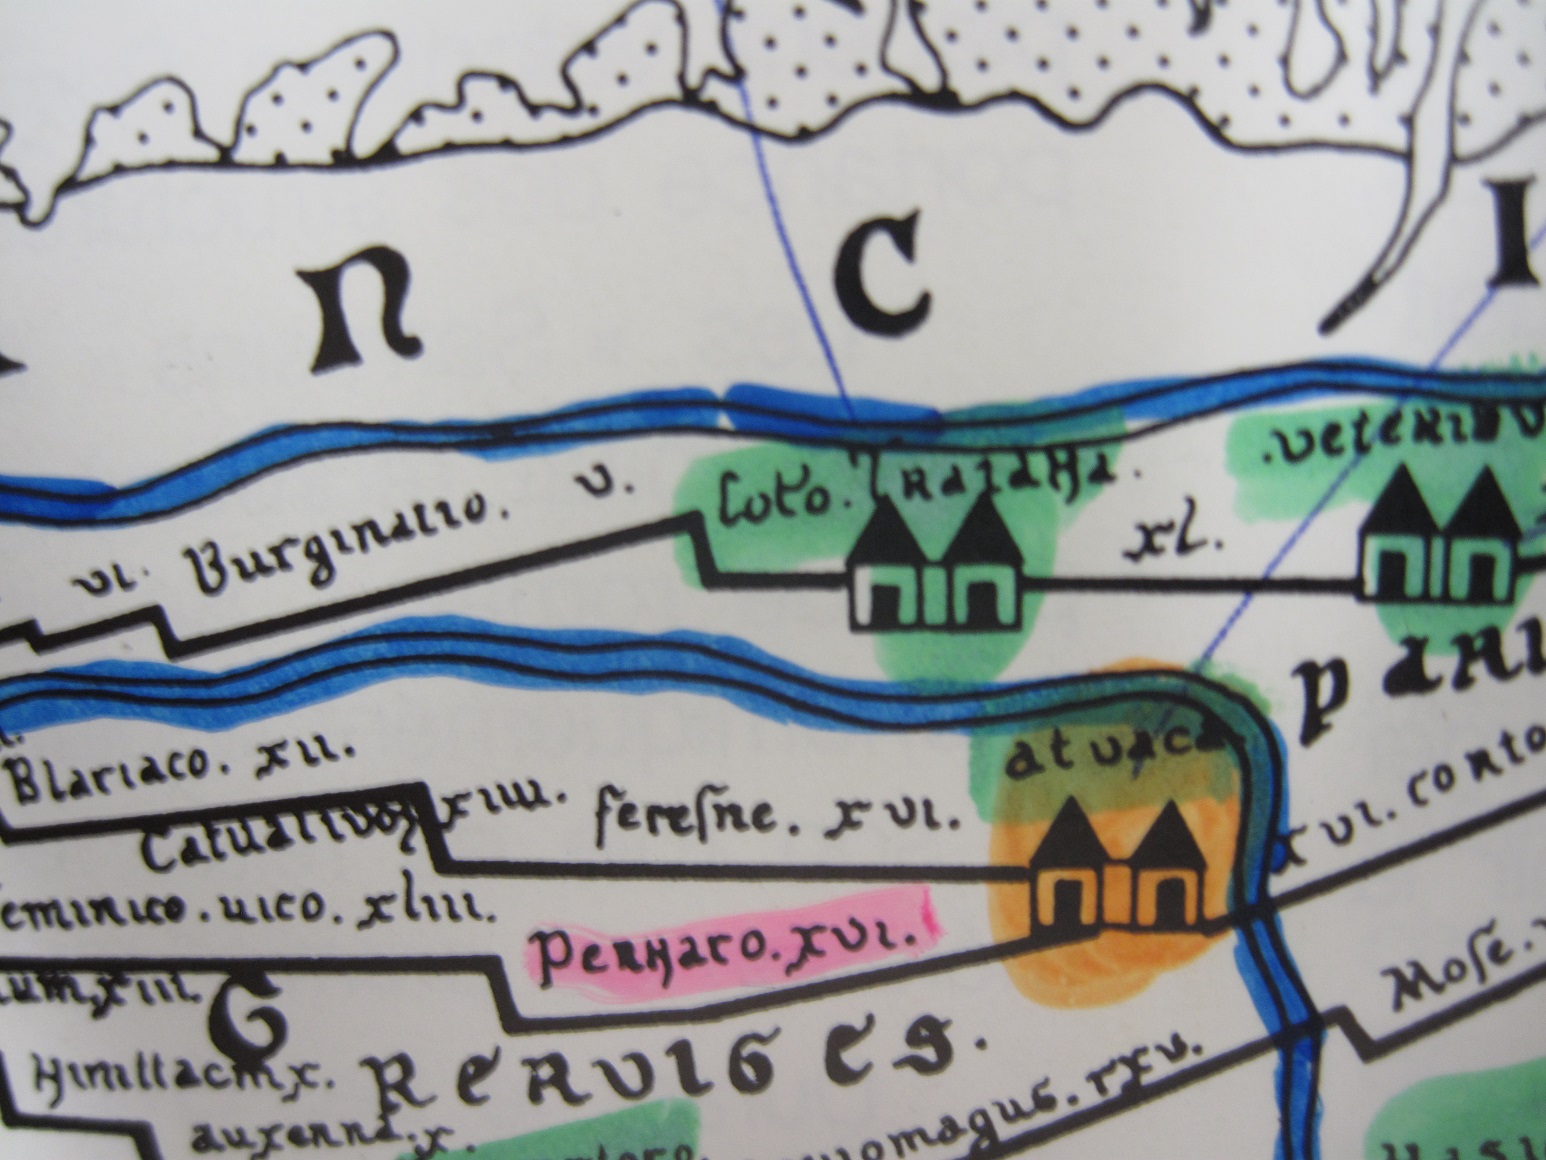 n C I
vi. Burginatio. v. Colo. Traiana. xl. veteribus
Pari
Blariaco. xii.
Catualium xiiii. feresne. xvi. atuaca xvi. conto
eminico. uico. xliii. Pernaco. xvi.
um, xiii. G
Hinillacm x. nerviges. Mose.
auxenna. x. nuomagus. rxv.